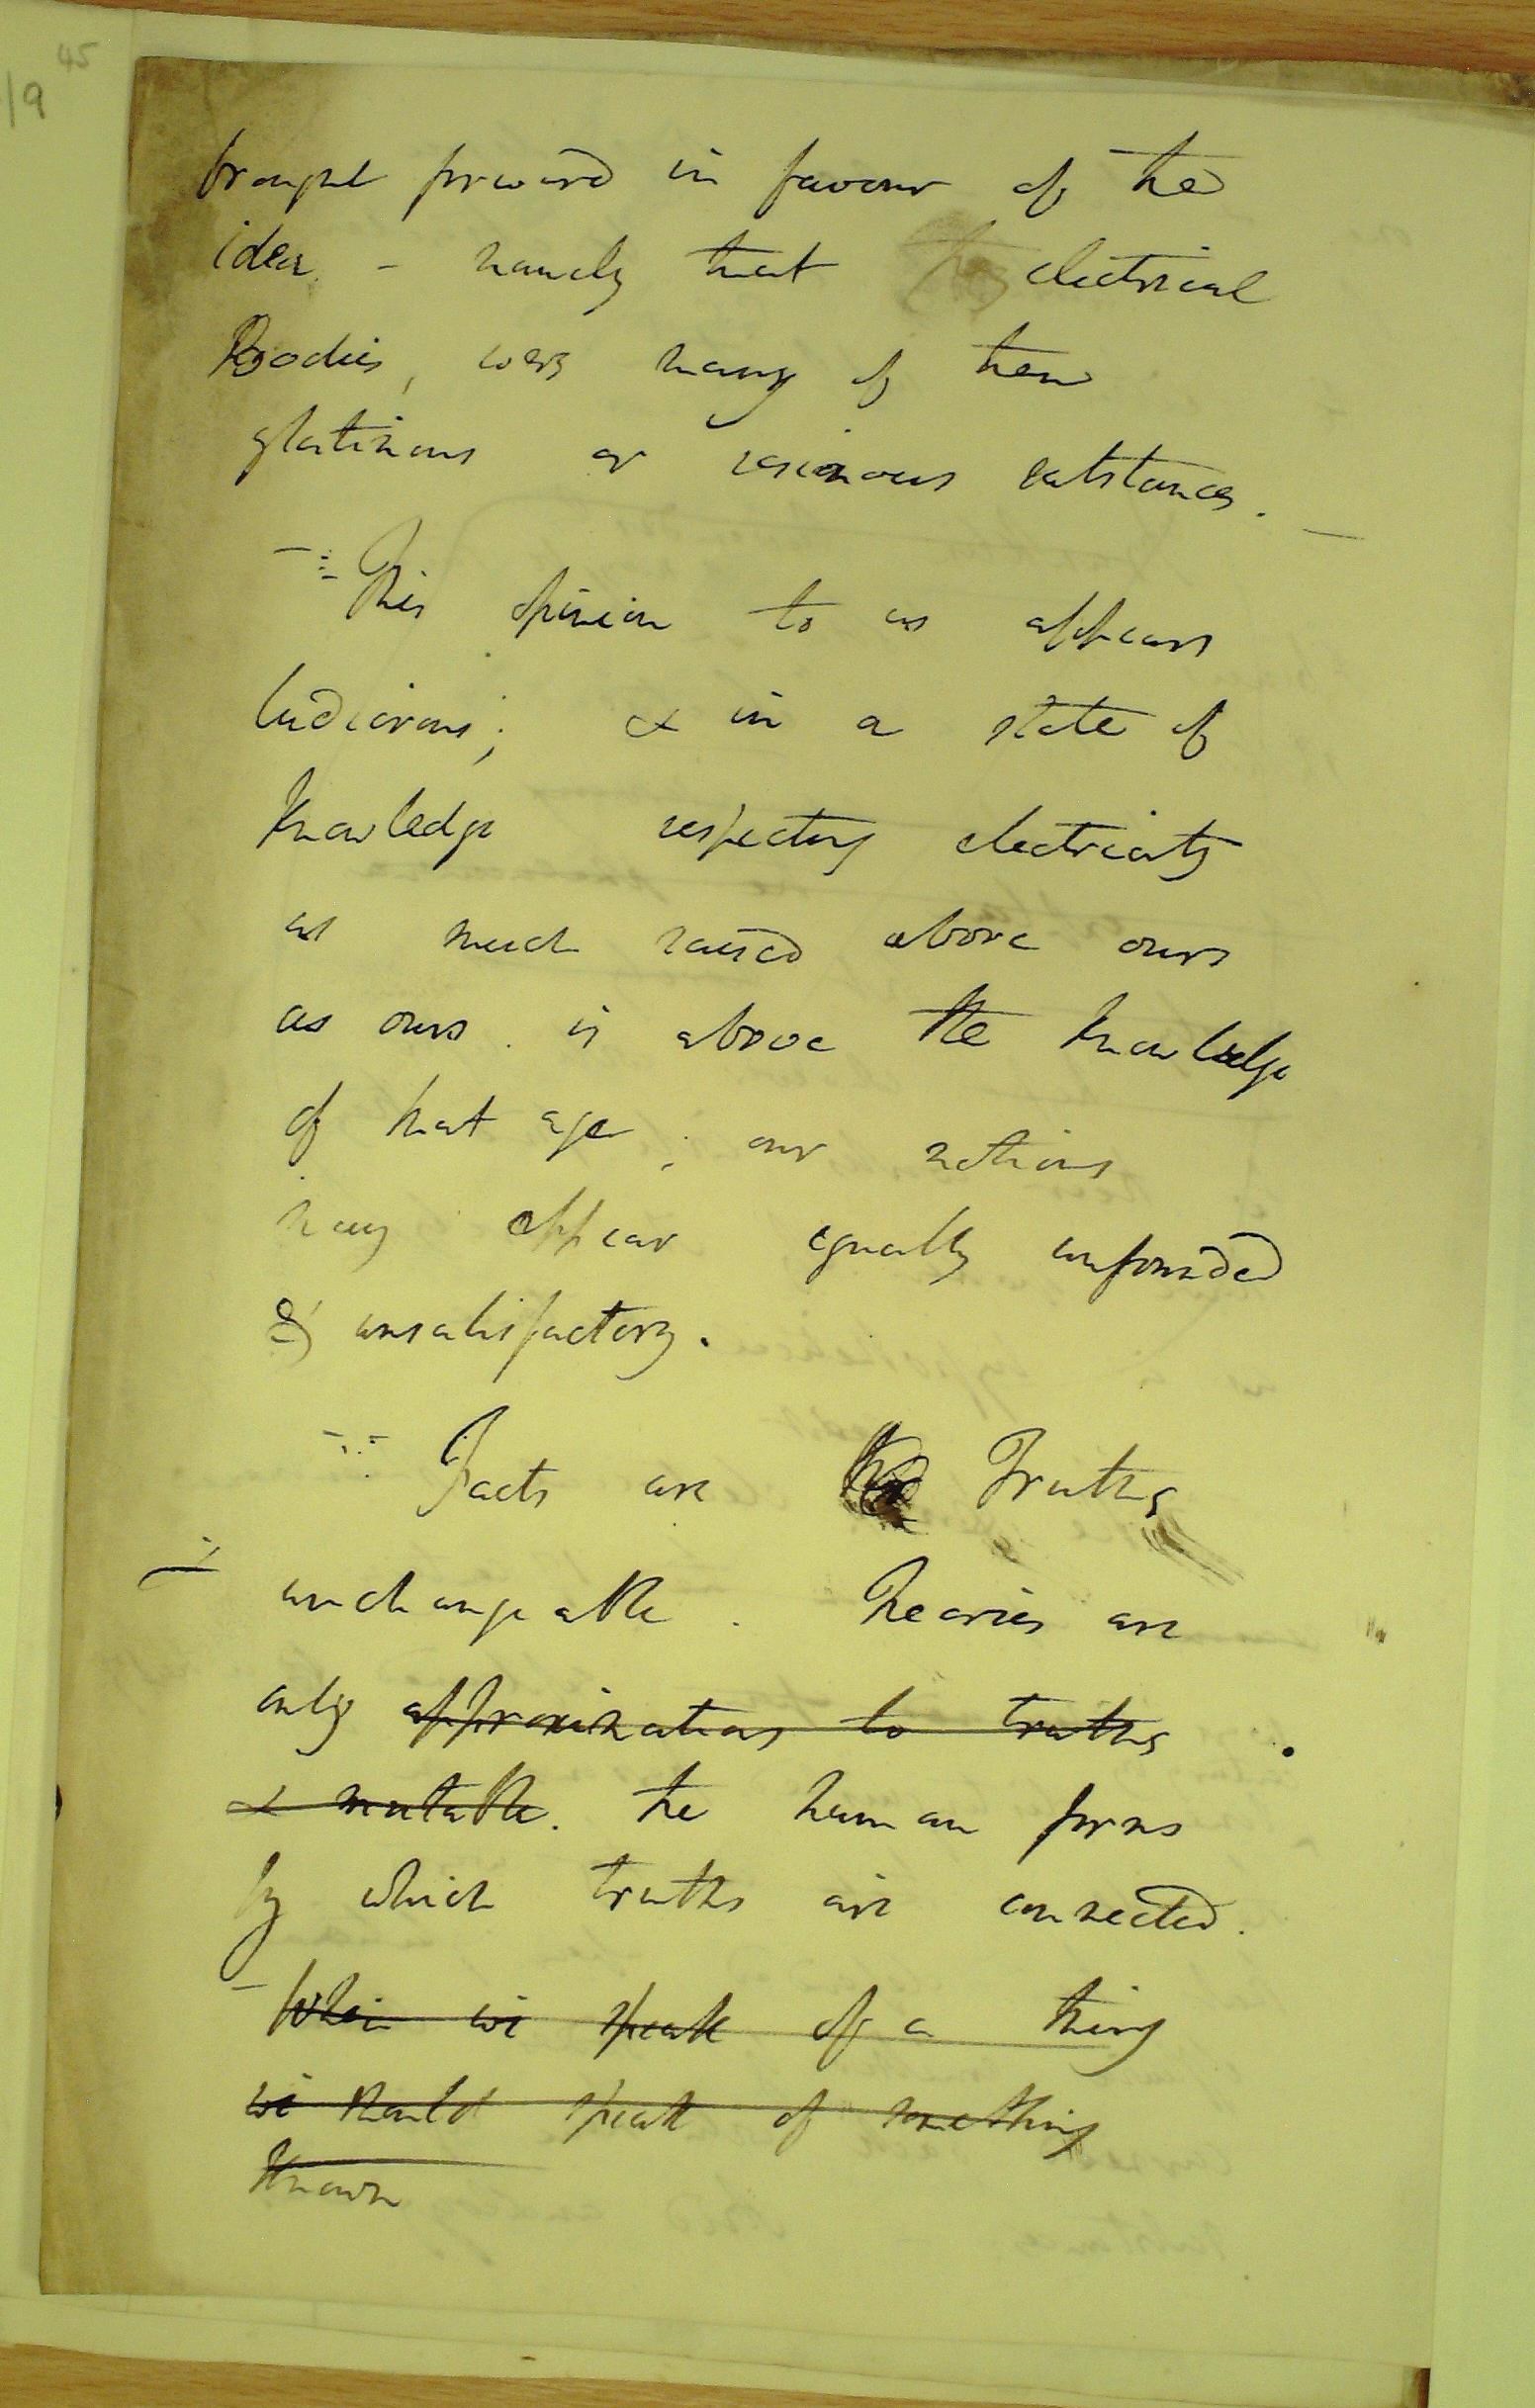 45
/9
brought forward in favour of the
idea. - namely that the electrical
Bodies, were many of them
glutinous or resinous substances. —
- This opinion to us appears
ludicrous; & in a state of
knowledge respecting electricity
as much raised above ours
as ours is above the knowledge
of that age; our notions
may appear equally unfounded
& unsatisfactory.
- Facts are Truths
unchangeable. Theories are
only approximations to truths.
& mutable. the human forms
by which truths are connected.
- When we speak of a thing
we should speak of something
known